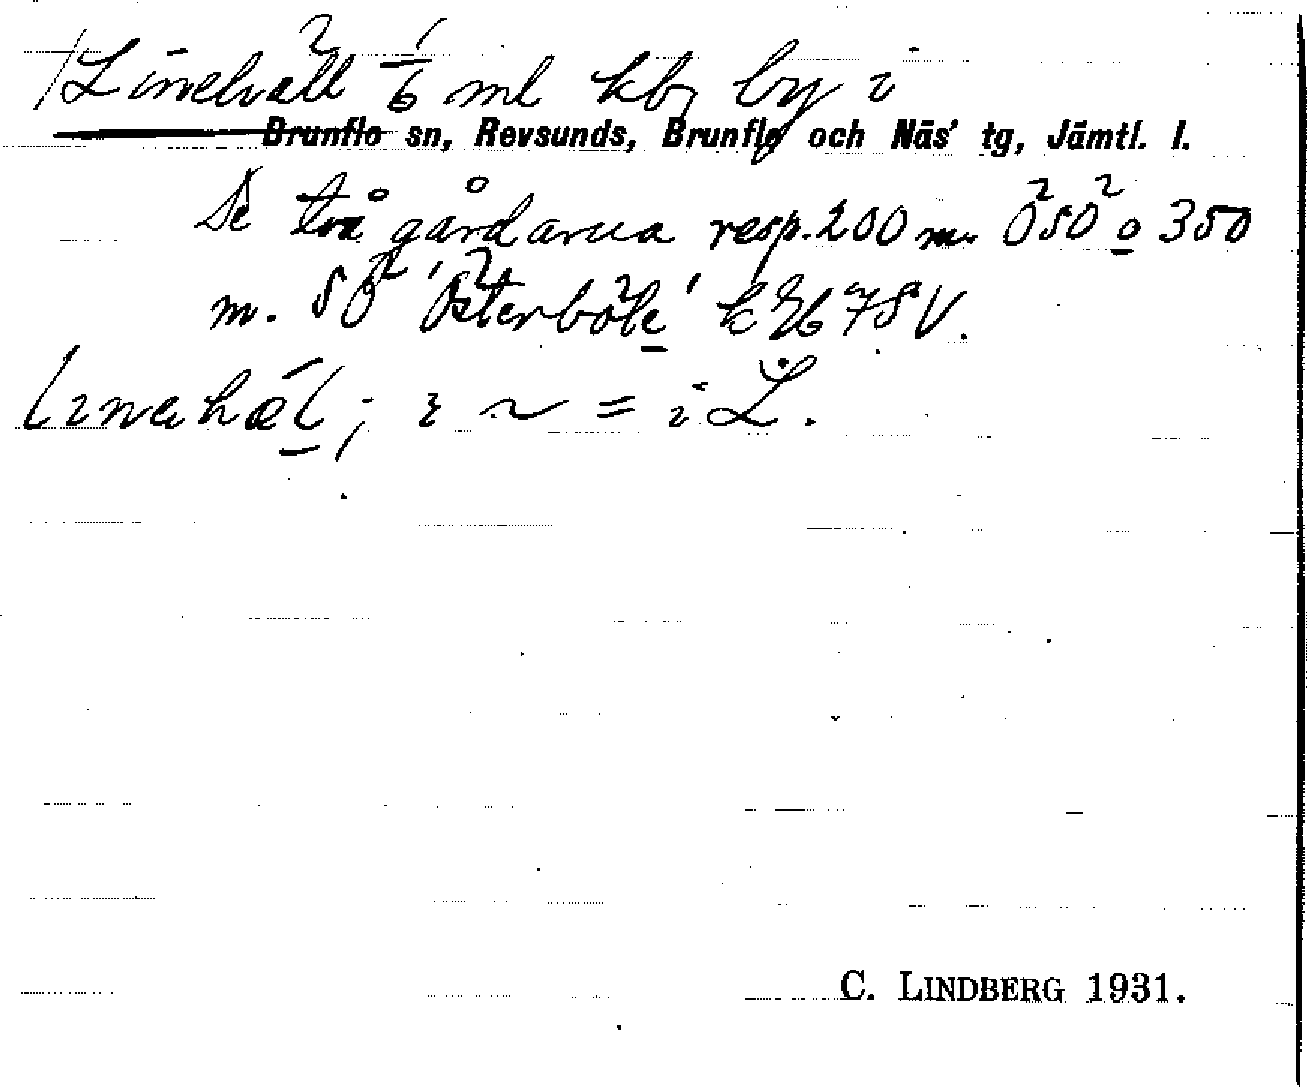 Linehväll 1/6 ml kbg by i
Brunflo sn, Revsunds, Brunflo och Näs' tg, Jämtl. l.
De två gårdarna resp. 200 m. ÖSÖ o 350
m. SÖ 'Österböle' 78 V.
i L.
C. LINDBERG 1931.